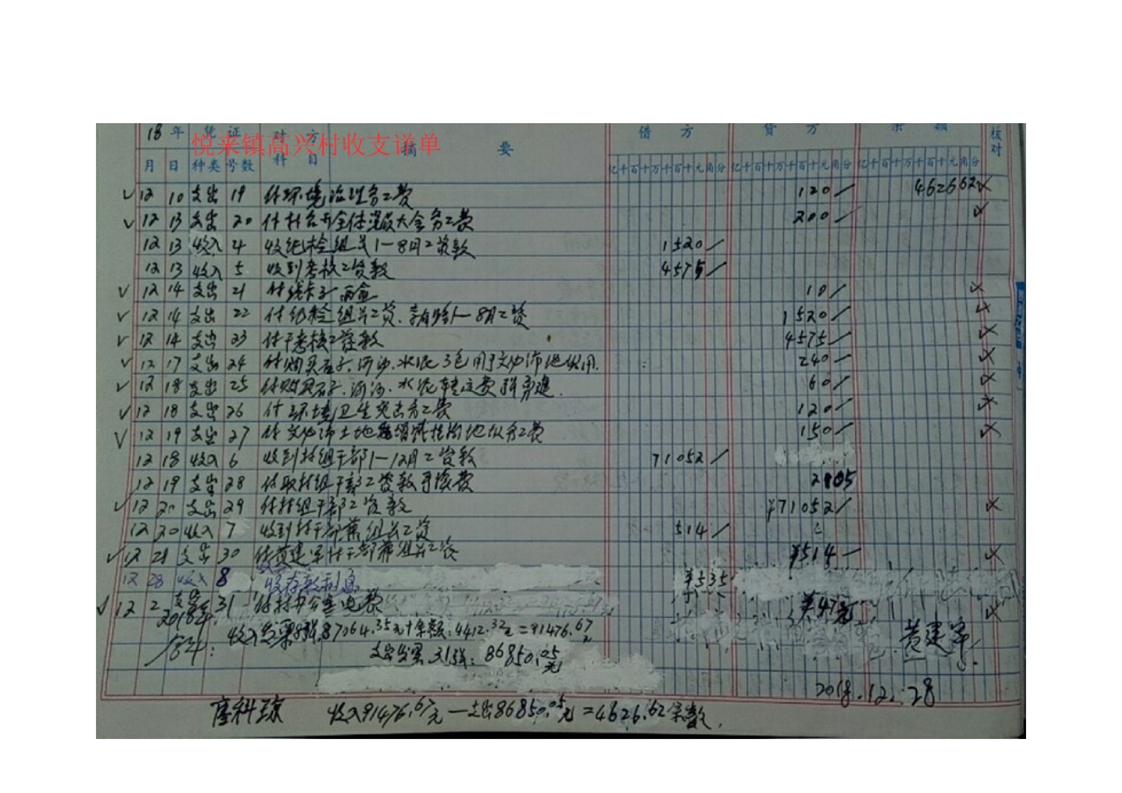 悦来镇高兴村收支详单
18年 凭证 对方 摘要 借方 贷方 余额 核对
月 日 种类 号数 科目 亿千百十万千百十元角分 亿千百十万千百十元角分 亿千百十万千百十元角分
√ 12 10 支出 19 付环境治理务工费 120/ 462662 ×
√ 12 13 支出 20 付村召开全体党员大会务工费 200/ ×
12 13 收入 4 收纪检组长1—8月工资款 1520/
12 13 收入 5 收到考核工资款 4575/
√ 12 14 支出 21 付 两盒 10/ ×
√ 12 14 支出 22 付纪检组长工资、1—8月工资 1520/ ×
√ 12 14 支出 23 付干考核工资款 4575/ ×
√ 12 17 支出 24 付购买石子、河沙、水泥3包用于文化 地 用. 240/ ×
√ 12 18 支出 25 付购买石子、河沙、水泥转运费 . 60/ ×
√ 12 18 支出 26 付环境卫生突击务工费 120/ ×
√ 12 19 支出 27 付文化 土地 务工费 150/ ×
12 18 收入 6 收到村组干部1—12月工资款 71052/
12 19 支出 28 付取村组干部工资款手续费 2805
√ 12 20 支出 29 付村组干部工资款 ¥71052/ ×
12 20 收入 7 收到村干部兼组长工资 514/
√ 12 21 支出 30 付黄建军村干部兼组长工资 ¥514— ×
12 28 收入 8 收存款利息 ¥535
√ 12 2 支出 31 付村办公室电费 ×
2018年
合计: 收入发票8张87064.35元+余额:4412.32元=91476.67元
支出发票31张:86850.05元
黄建军
2018.12.28
收入91476.67元—支出86850.05元=4626.62余款.